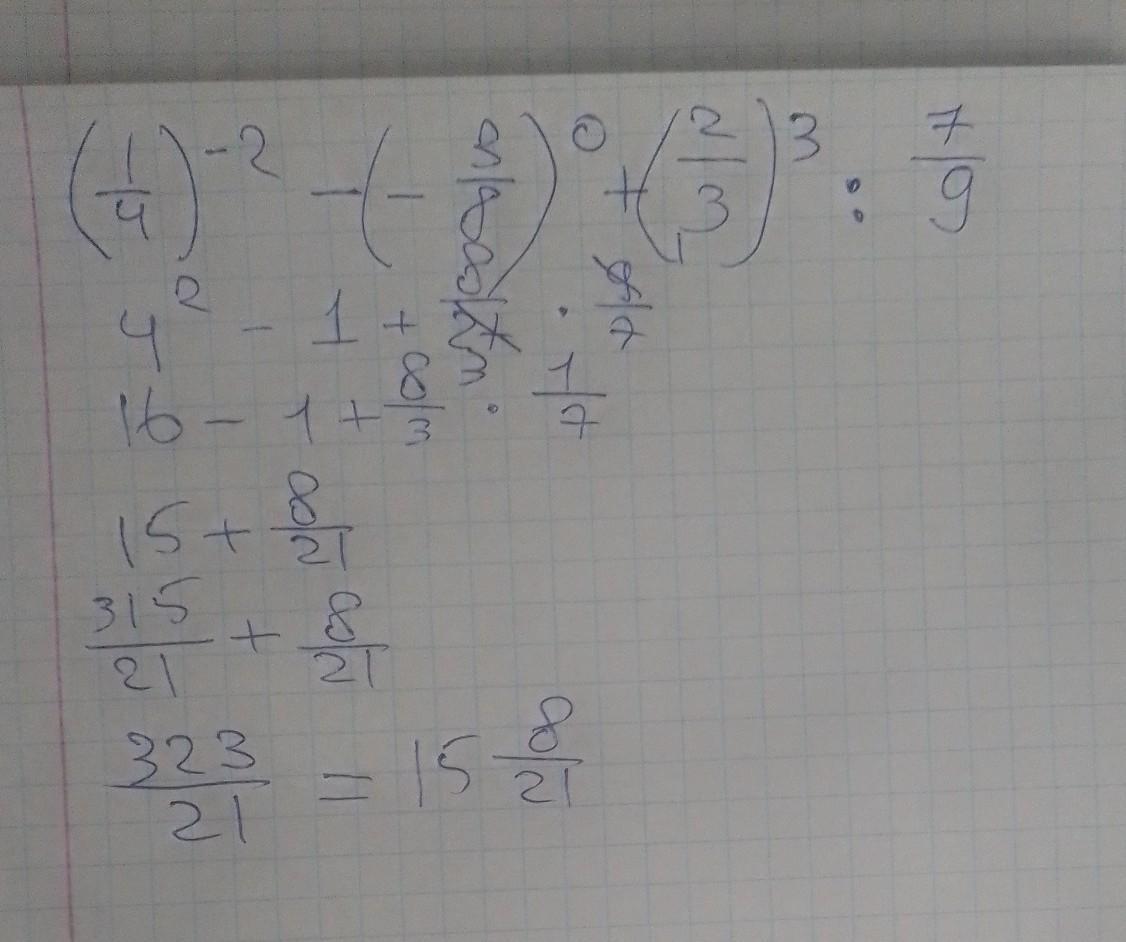 (1/4)^-2 - (- 3/8)^0 + (2/3)^3 : 7/9
4^2 - 1 + 8/27 · 9/7
16 - 1 + 8/3 · 1/7
15 + 8/21
315/21 + 8/21
323/21 = 15 8/21